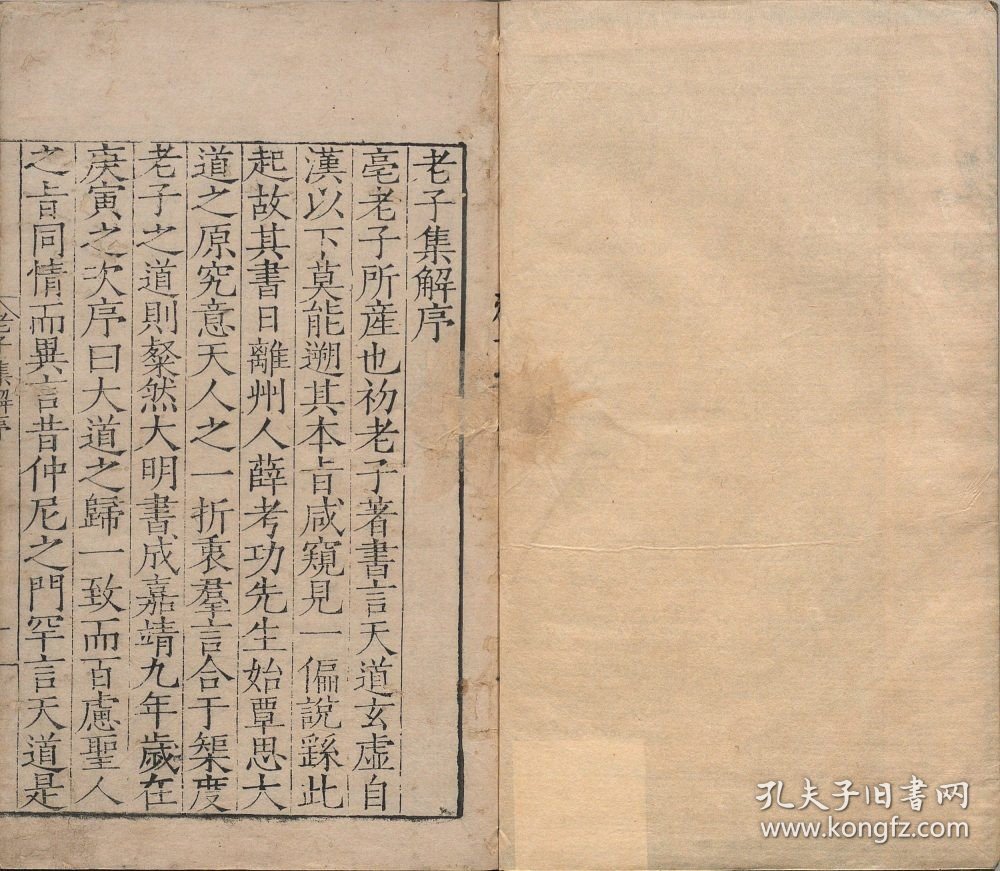 老子集解序
亳老子所産也初老子著書言天道玄虛自
漢以下莫能遡其本㫖咸窺見一偏說繇此
起故其書日離州人薛考功先生始覃思大
道之原究意天人之一折衷羣言合于榘度
老子之道則粲然大明書成嘉靖九年歲在
庚寅之次序曰大道之歸一致而百慮聖人
之㫖同情而異言昔仲尼之門罕言天道是
老子集解序
一
孔夫子旧書网
www.kongfz.com